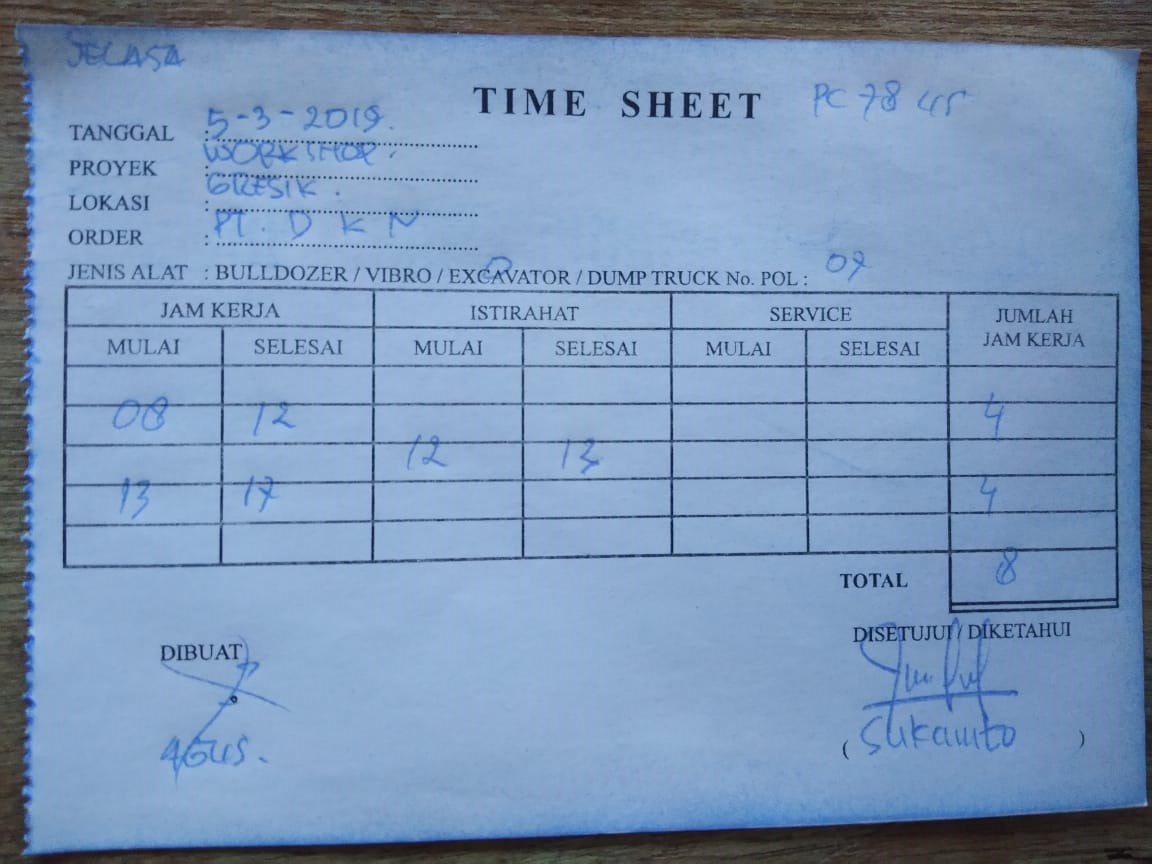 SELASA
TIME SHEET PC 78 US
TANGGAL : 5-3-2019.
PROYEK : WORKSHOP.
LOKASI : GRESIK.
ORDER : PT. D K N
JENIS ALAT : BULLDOZER / VIBRO / EXCAVATOR / DUMP TRUCK No. POL : 07
JAM KERJA ISTIRAHAT SERVICE JUMLAH JAM KERJA
MULAI SELESAI MULAI SELESAI MULAI SELESAI
08 12 4
12 13
13 17 4
TOTAL 8
DIBUAT DISETUJUI / DIKETAHUI
AGUS. ( Sukamto )